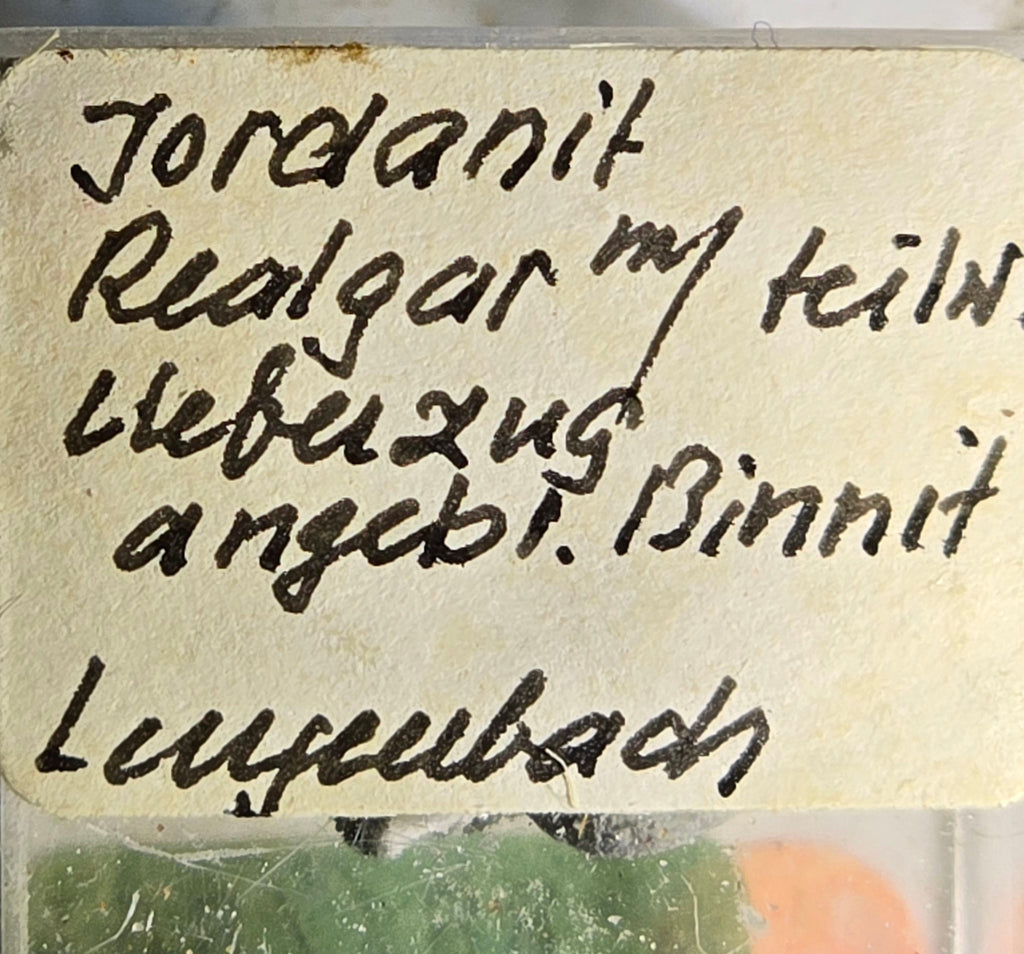 Jordanit
Realgar m/ teilw.
Ueberzug
angebl. Binnit
Lengenbach